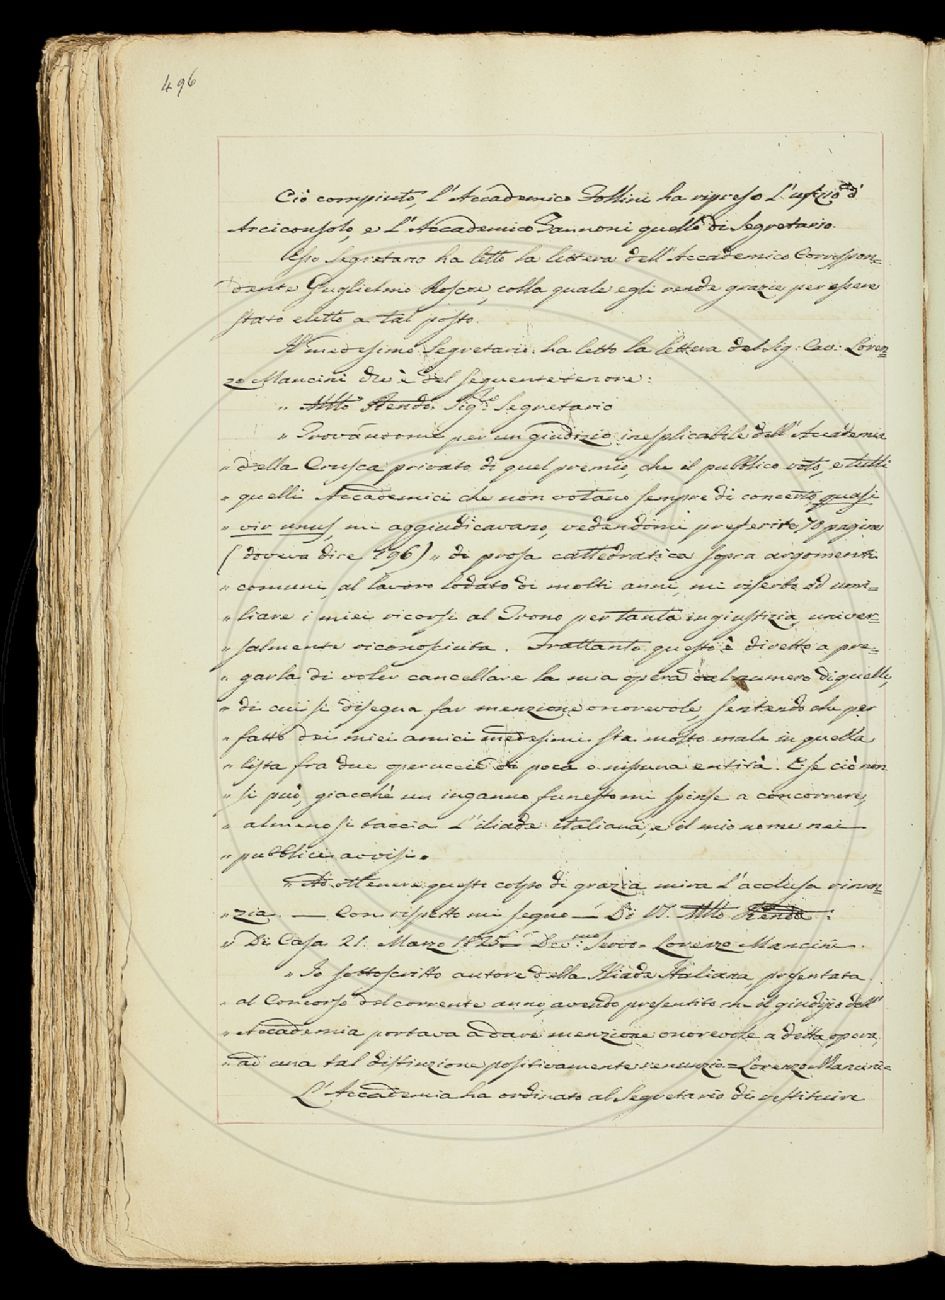 496
Ciò compiuto, l'Accademico Follini ha ripreso l'ufizio d'
Arciconsolo, e l'Accademico Zannoni quello di Segretario.
Esso Segretario ha letto la lettera dell'Accademico Corrispon=
dente Guglielmo Roscoe, colla quale egli rende grazie per essere
stato eletto a tal posto.
Il medesimo Segretario ha letto la lettera del Sig: Cav: Loren=
zo Mancini che è del seguente tenore:
" Mlto Rendo Sigr Segretario
" Trovandomi per un giudizio inesplicabile dell'Accademia
" della Crusca privato di quel premio, che il pubblico voto, e tutti
" quelli Accademici che non votano sempre di concerto quasi
" vir unus, mi aggiudicavano, vedendomi preferite 70 pagine
(doveva dire 196) " di prosa cattedratica sopra argomenti
" comuni, al lavoro lodato di molti anni, mi riserbo ad umi=
" liare i miei ricorsi al Trono per tanta ingiustizia, univer=
" salmente riconosciuta. Frattanto questo è diretto a pre=
" garla di voler cancellare la mia opera dal numero di quelle,
" di cui si disegna far menzione onorevole, sentendo che per
" fatto dei miei amici medesimi sta molto male in quella
" lista fra due operucce di poca o nissuna entità. E se ciò non
" si può, giacchè un inganno funesto mi spinse a concorrere,
" almeno si taccia l'iliade italiana, e il mio nome nei
" pubblici avvisi.
" Ad ottenere questo colpo di grazia mira l'acclusa rinun=
" zia. — Con rispetto mi segno — Di V.S. Mlto Renda:
" Di Casa 21. Marzo 1825 — Devmo Servo Lorenzo Mancini.
" Io sottoscritto autore della Iliade Italiana, presentata
" al Concorso del corrente anno, avendo presentito che il giudizio dell'
" Accademia portava a dare menzione onorevole a detta opera,
" ad una tal distinzione positivamente renunzio = Lorenzo Mancini =
L'Accademia ha ordinato al Segretario di restituire